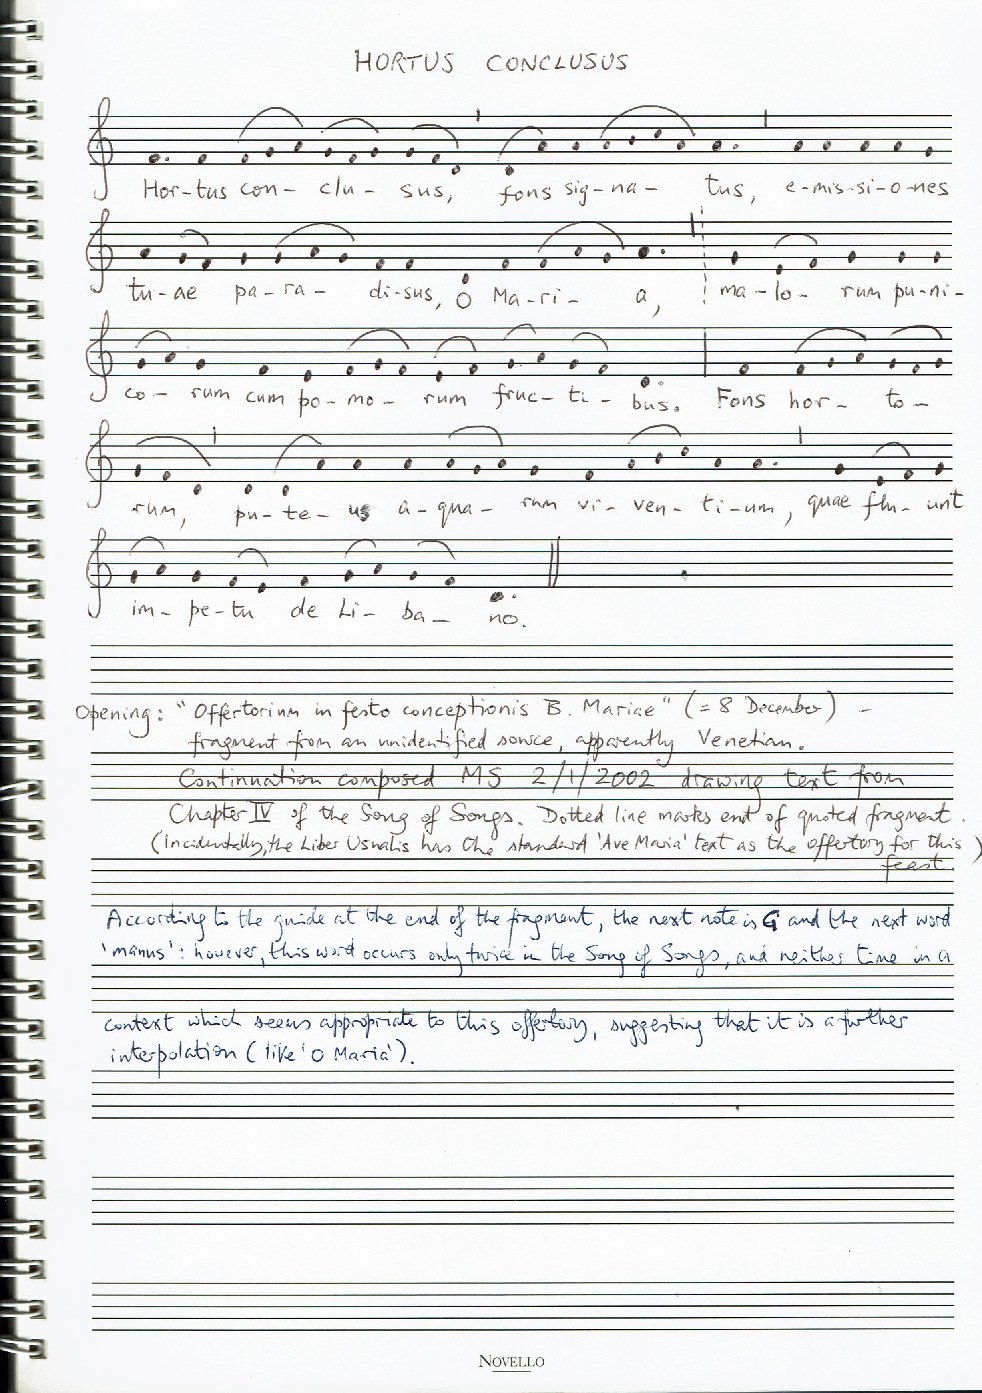 HORTUS CONCLUSUS
Hor-tus con- clu- sus, fons sig-na- tus, e-mis-si-o-nes
tu-ae pa-ra- di-sus, O Ma-ri- a, ma-lo- rum pu-ni-
co- rum cum po-mo- rum fruc-ti- bus. Fons hor- to-
rum, pu-te- us a-qua- rum vi-ven-ti-um, quae flu- unt
im- pe-tu de Li- ba- no.
Opening: "Offertorium in festo conceptionis B. Mariae" (= 8 December) -
fragment from an unidentified source, apparently Venetian.
Continuation composed MS 2/1/2002 drawing text from
Chapter IV of the Song of Songs. Dotted line marks end of quoted fragment.
(Incidentally, the Liber Usualis has the standard 'Ave Maria' text as the offertory for this
feast.)
According to the guide at the end of the fragment, the next note is G and the next word
'manus': however, this word occurs only twice in the Song of Songs, and neither time in a
context which seems appropriate to this offertory, suggesting that it is a further
interpolation (like 'O Maria').
NOVELLO